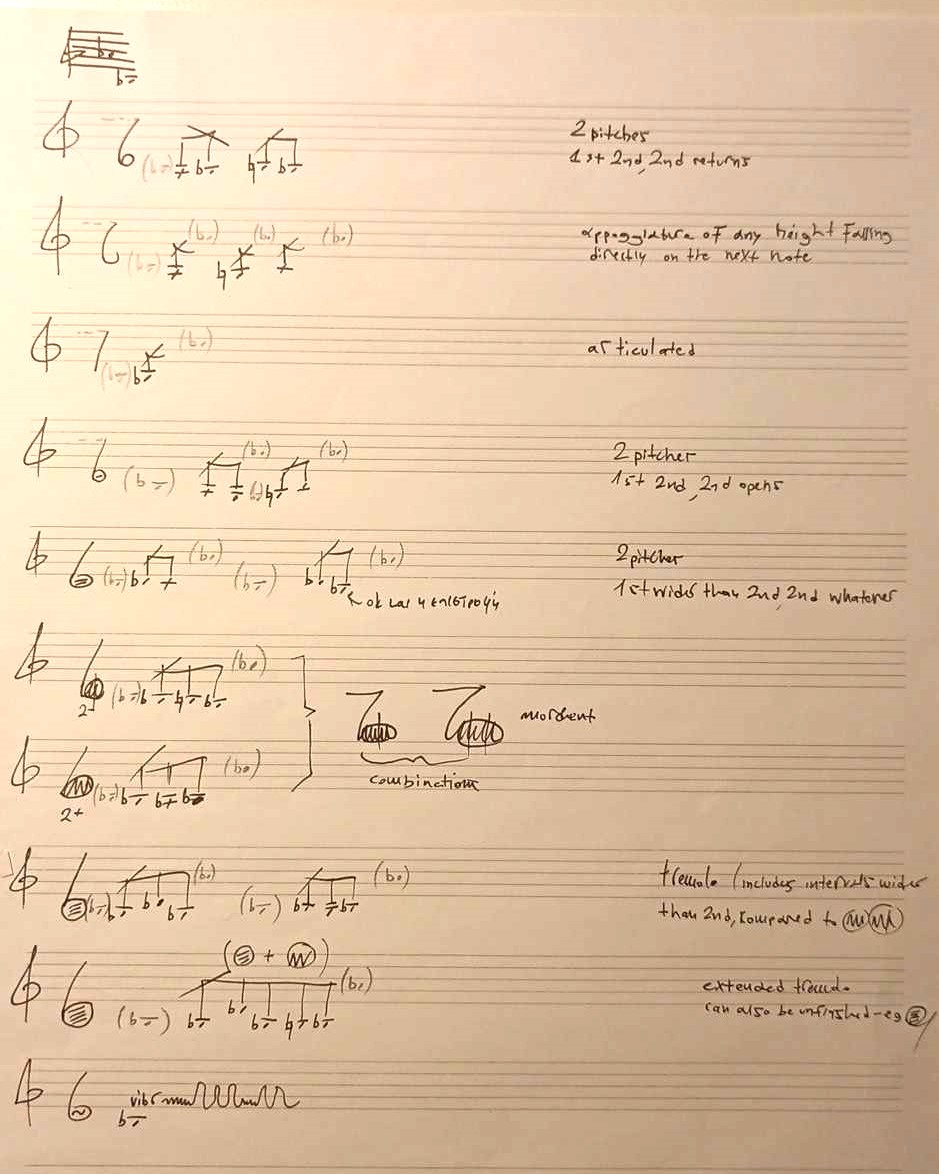 2 pitches
1st 2nd, 2nd returns
appoggiatura of any height falling
directly on the next note
articulated
2 pitcher
1st 2nd, 2nd opens
2 pitcher
1st wider than 2nd, 2nd whatever
ok και η επιστροφή
2-
mordent
combinations
2+
tremolo (includes intervals wider
than 2nd, kompared to
extended tremolo
can also be unfinished - eg
vibr